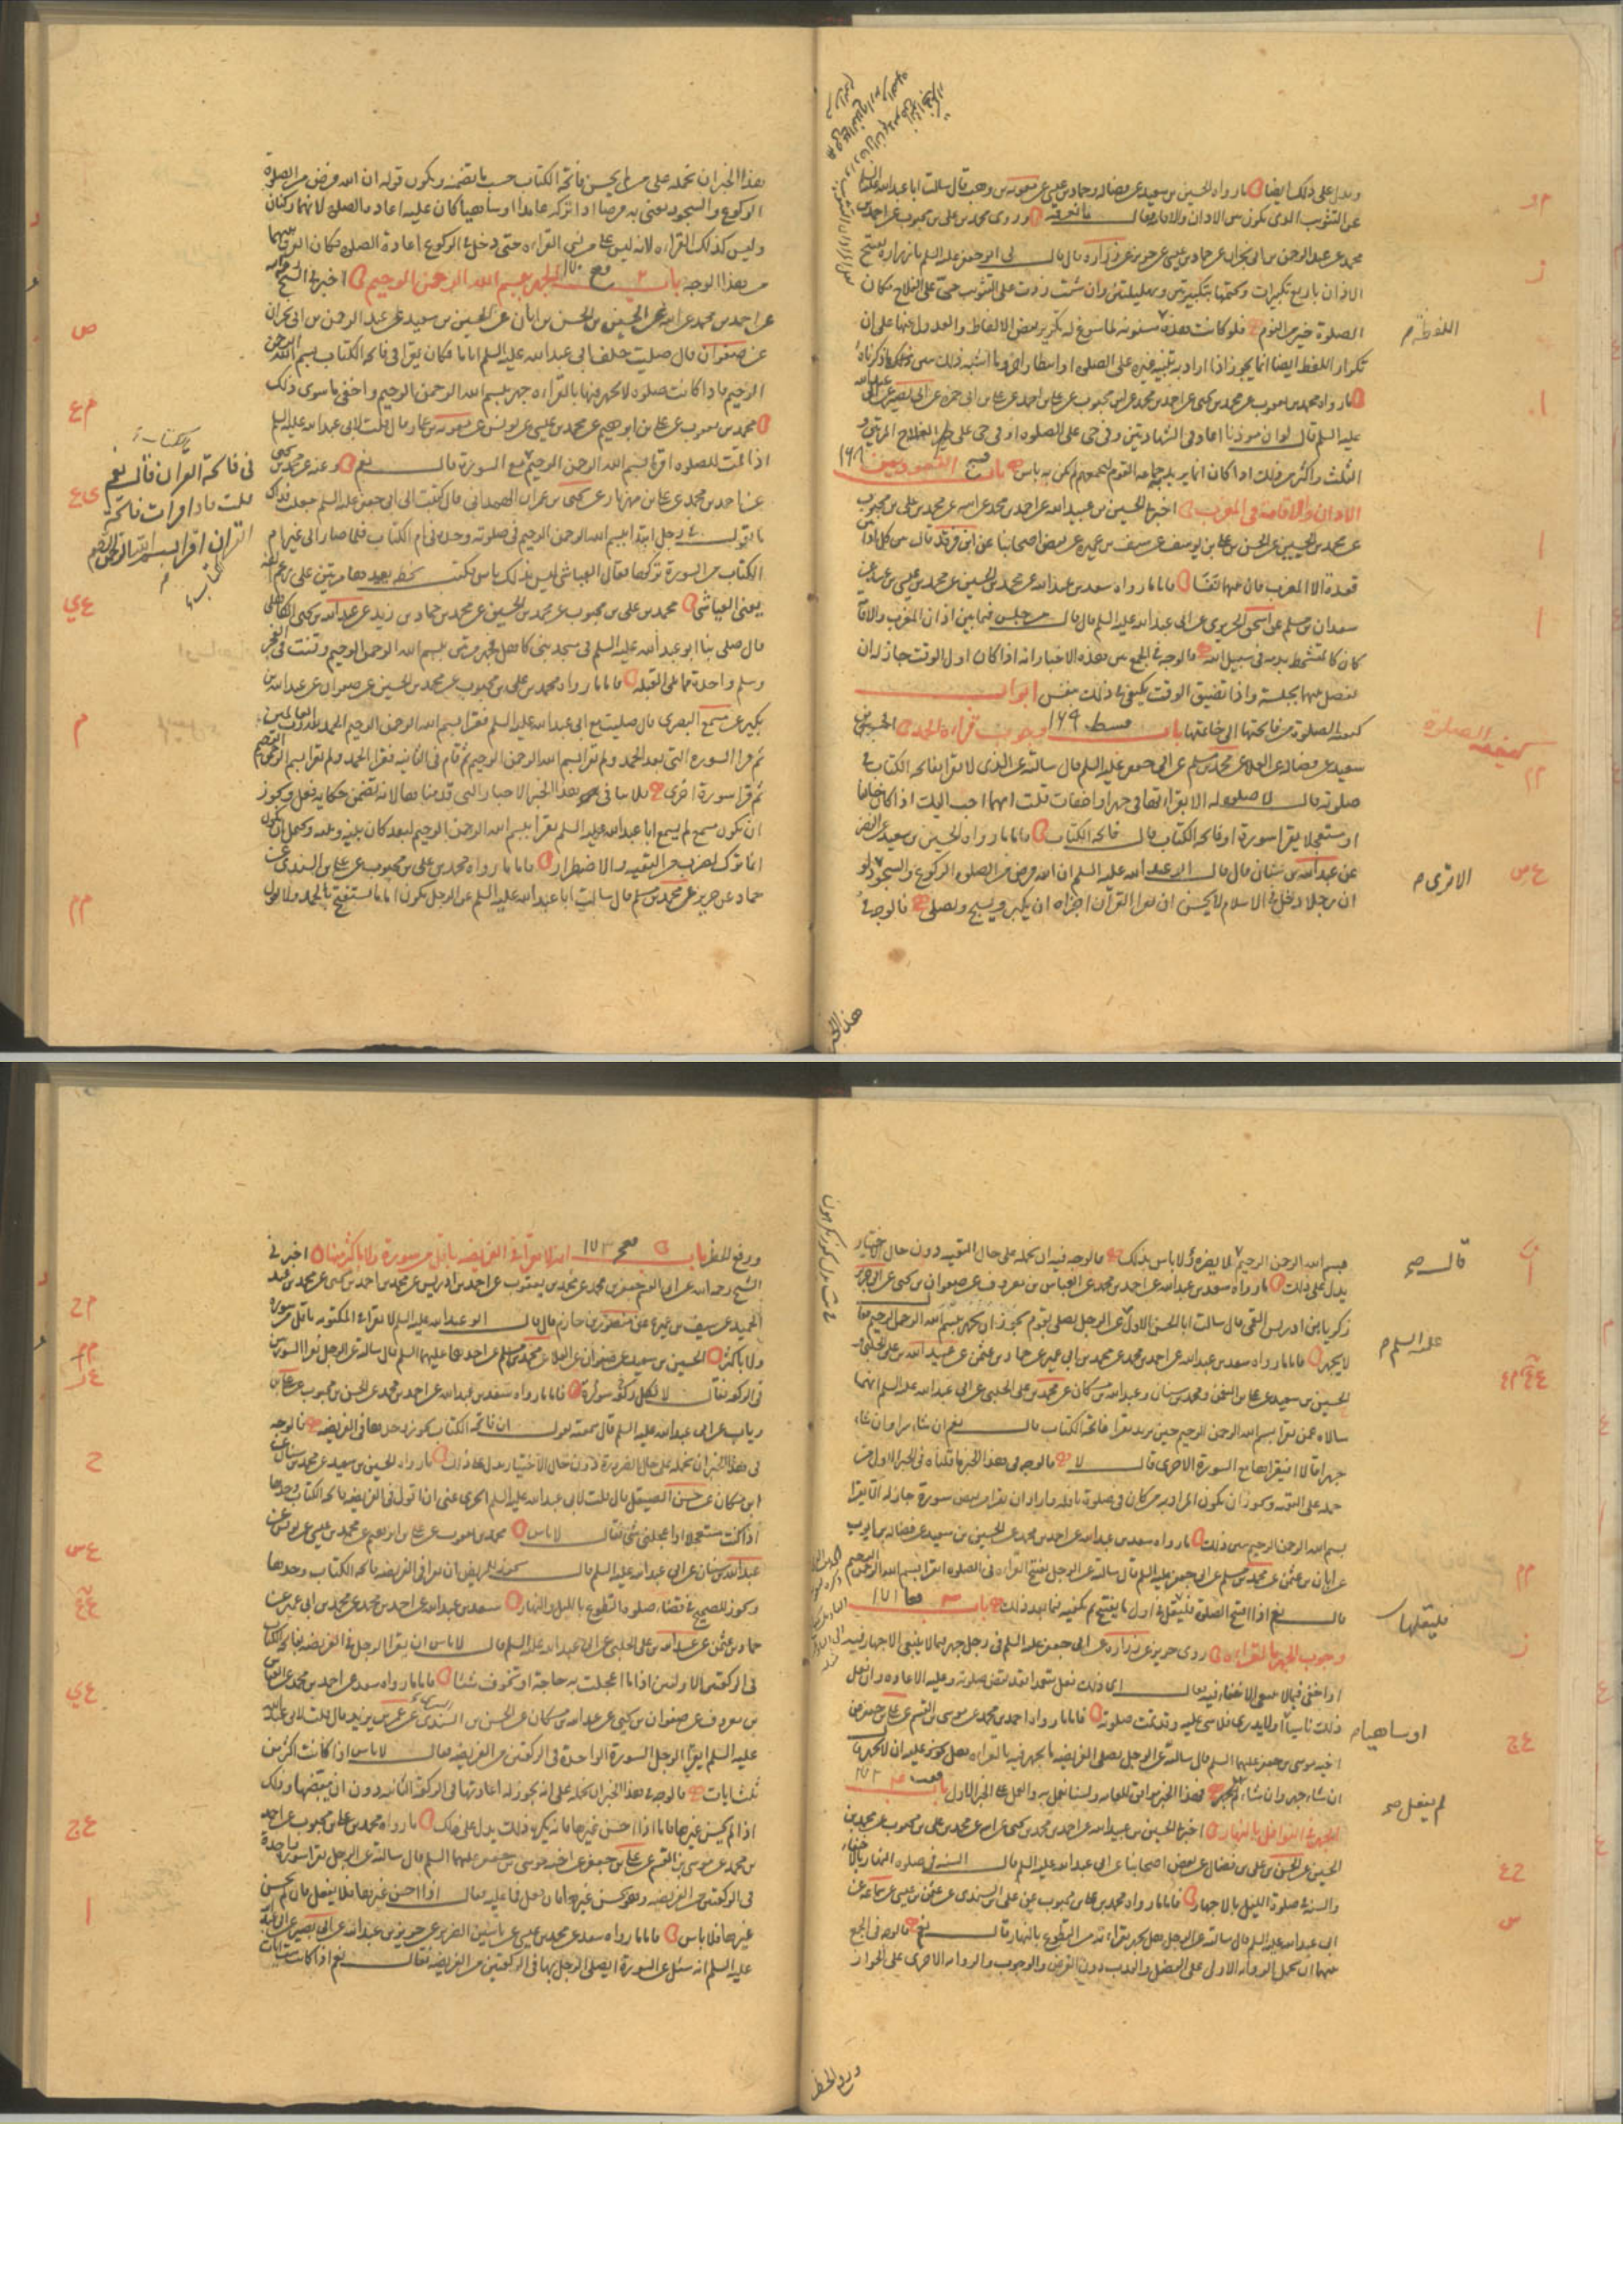 ويدل على ذلك ايضا ما رواه الحسين بن سعيد عن فضاله وحماد بن عيسى عن معوية بن وهب قال سالت ابا عبد الله عليه السلم
عن التثويب الذي يكون بين الاذان والاقامة فقال ما نعرفه وروى محمد بن علي بن محبوب عن احمد بن
محمد عن عبد الرحمن بن ابي نجران عن حماد بن عيسى عن حريز عن زراره قال قال لي ابو جعفر عليه السلم يا زراره تفتتح
الاذان باربع تكبيرات وتختمها بتكبيرتين وتهليلتين وان شئت زدت على التثويب حي على الفلاح مكان
الصلوة خير من النوم فلو كانت هذه مسنونه لما سوغ له تكرير بعض الالفاظ والعدول عنها على ان
تكرار اللفظ ايضا انما يجوز اذا اراد به تنبيه غيره على الصلوه او انتظار اخر وما اشبه ذلك يبين ذلك ما ذكرناه
ما رواه محمد بن يعقوب عن محمد بن يحيى عن احمد بن محمد عن ابن محبوب عن علي بن ابي حمزه عن ابي بصير عن ابي عبد الله
عليه السلم قال لو ان موذنا اعاد في الشهادتين وفي حي على الصلوه او في حي على الفلاح المرتين و
الثلث واكثر من ذلك اذا كان انما يريد جماعه القوم ليجمعهم لم يكن به باس باب القعود بين
الاذان والاقامة في المغرب اخبرنا الحسين بن عبيد الله عن احمد بن محمد عن ابيه عن محمد بن علي بن محبوب
عن محمد بن الحسين عن الحسن بن علي بن يوسف عن سيف بن عميره عن بعض اصحابنا عن ابن فرقد قال بين كل اذانين
قعدة الا المغرب فان بينهما نفسا فاما ما رواه سعد بن عبد الله عن محمد بن الحسين عن محمد بن عيسى بن عبيد عن
سعدان بن مسلم عن اسحق الجريري عن ابي عبد الله عليه السلم قال قال من جلس فيما بين اذان المغرب والاقامة
كان كالمتشحط بدمه في سبيل الله فالوجه في الجمع بين هذه الاخبار انه اذا كان اول الوقت جاز له ان
يفصل بينهما بجلسة واذا تضيق الوقت يكتفي في ذلك بنفس ابواب
كيفية الصلوة من فاتحتها الى خاتمتها باب وجوب قراءة الحمد الحسين بن
سعيد عن فضاله عن العلا عن محمد بن مسلم عن ابي جعفر عليه السلم قال سالته عن الذي لا يقرا بفاتحه الكتاب في
صلوته قال لا صلوه له الا بقراءتها في جهر او اخفات قلت ايهما احب اليك اذا كان خايفا
او مستعجلا يقرا سورة او فاتحه الكتاب قال فاتحه الكتاب فاما ما رواه الحسين بن سعيد عن النضر
عن عبد الله بن سنان قال قال ابو عبد الله عليه السلم ان الله فرض من الصلوة الركوع والسجود
ان رجلا دخل في الاسلام لا يحسن ان يقرا القرآن اجزاه ان يكبر ويسبح ويصلي فالوجه في
اللفظة
كيفية الصلوة
الا ترى
هذا الخبر
هذا الخبر ان نحمله على من لم يحسن فاتحة الكتاب حسب ما تضمنه ويكون قوله ان الله فرض من الصلوة
الركوع والسجود يعنى به فرضا اذا تركه عامدا او ساهيا كان عليه اعادة الصلوة لانهما ركنان
وليس كذلك القراءه لانه ليس على من نسي القراءه حتى دخل في الركوع اعادة الصلوة فكان الفرق بينهما
من هذا الوجه باب الجهر ببسم الله الرحمن الرحيم اخبرني الشيخ رحمه الله
عن احمد بن محمد عن ابيه عن الحسين بن الحسن بن ابان عن الحسين بن سعيد عن عبد الرحمن بن ابي نجران
عن صفوان قال صليت خلف ابي عبد الله عليه السلم اياما فكان يقرا في فاتحه الكتاب بسم الله الرحمن
الرحيم فاذا كانت صلوه لا يجهر فيها بالقراءه جهر ببسم الله الرحمن الرحيم واخفى ما سوى ذلك
محمد بن يعقوب عن علي بن ابرهيم عن محمد بن عيسى عن يونس عن معوية بن عمار قال قلت لابي عبد الله عليه السلم
اذا قمت للصلوه اقرا بسم الله الرحمن الرحيم مع السورة قال نعم وعنه عن محمد بن يحيى
عن احمد بن محمد عن علي بن مهزيار عن يحيى بن عمران الهمداني قال كتبت الى ابي جعفر عليه السلم جعلت فداك
ما تقول في رجل ابتدا ببسم الله الرحمن الرحيم في صلوته وحده في ام الكتاب فلما صار الى غير ام
الكتاب من السورة تركها فقال العباسي ليس بذلك باس فكتب بخطه يعيدها مرتين على رغم انفه
يعني العباسي محمد بن علي بن محبوب عن محمد بن الحسين عن محمد بن حماد بن زيد عن عبد الله بن يحيى الكاهلي
قال صلى بنا ابو عبد الله عليه السلم في مسجد بني كاهل فجهر مرتين ببسم الله الرحمن الرحيم وقنت في الفجر
وسلم واحدة مما يلي القبله فاما ما رواه محمد بن علي بن محبوب عن محمد بن الحسين عن صفوان عن عبد الله بن
بكير عن مسمع البصري قال صليت مع ابي عبد الله عليه السلم فقرا بسم الله الرحمن الرحيم الحمد لله رب العالمين
ثم قرا السورة التي بعد الحمد ولم يقرا بسم الله الرحمن الرحيم ثم قام في الثانيه فقرا الحمد ولم يقرا بسم الله الرحمن الرحيم
ثم قرا سورة اخرى فلا ينافي هذا الخبر الاخبار التي قدمناها لانه تضمن حكايه فعل ويجوز
ان يكون مسمع لم يسمع ابا عبد الله عليه السلم يقرا بسم الله الرحمن الرحيم لبعد كان بينه وبينه ويحتمل ان يكون
انما ترك لضرب من التقيه والاضطرار فاما ما رواه محمد بن علي بن محبوب عن علي بن السندي عن
حماد عن حريز عن محمد بن مسلم قال سالت ابا عبد الله عليه السلم عن الرجل يكون اماما يستفتح بالحمد ولا يقرا
في فاتحة القران قال نعم
قلت فاذا قرات فاتحة
القران اقرا بسم الله الرحمن الرحيم
بسم الله الرحمن الرحيم قال لا يضره ولا باس بذلك فالوجه فيه ان نحمله على حال التقيه دون حال الاختيار
يدل على ذلك ما رواه سعد بن عبد الله عن احمد بن محمد عن العباس بن معروف عن صفوان بن يحيى عن ابي جرير
زكريا بن ادريس القمي قال سالت ابا الحسن الاول عن الرجل يصلي بقوم يكرهون ان يجهر ببسم الله الرحمن الرحيم فقال
لا يجهر فاما ما رواه سعد بن عبد الله عن احمد بن محمد عن محمد بن ابي عمير عن حماد بن عثمن عن عبيد الله بن علي الحلبي و
الحسين بن سعيد عن علي بن النعمن ومحمد بن سنان وعبد الله بن مسكان عن محمد بن علي الحلبي عن ابي عبد الله عليه السلم انهما
سالاه عمن يقرا بسم الله الرحمن الرحيم حين يريد يقرا فاتحة الكتاب قال نعم ان شاء سرا وان شاء
جهرا قالا افيقراها مع السورة الاخرى قال لا فالوجه في هذا الخبر ما قلناه في الخبر الاول من
حمله على التقيه ويجوز ان يكون المراد به من كان في صلوة نافله واراد ان يقرا من بعض سورة جاز له الا يقرا
بسم الله الرحمن الرحيم يبين ذلك ما رواه سعد بن عبد الله عن احمد بن محمد عن الحسين بن سعيد عن فضاله بن ايوب
عن ابان بن عثمن عن محمد بن مسلم عن ابي جعفر عليه السلم قال سالته عن الرجل يفتتح القراءه في الصلوه ايقرا بسم الله الرحمن الرحيم
قال نعم اذا افتتح الصلوة فليقل في اول ما يفتتح ثم يكفيه فيما بعد ذلك باب
وجوب الجهر بالقراءه روى حريز عن زراره عن ابي جعفر عليه السلم في رجل جهر فيما لا ينبغي الاجهار فيه
او اخفى فيما لا ينبغي الاخفاء فيه فقال اي ذلك فعل متعمدا فقد نقض صلوته وعليه الاعاده وان فعل
ذلك ناسيا او لا يدري فلا شي عليه وقد تمت صلوته فاما ما رواه احمد بن محمد عن موسى بن القسم عن علي بن جعفر عن
اخيه موسى بن جعفر عليهما السلم قال سالته عن الرجل يصلي الفريضه ما يجهر فيه بالقراءه هل يجوز عليه ان لا يجهر قال
ان شاء جهر وان شاء لم يجهر فهذا الخبر موافق للعامه ولسنا نعمل به والعمل على الخبر الاول باب
الجهر في النوافل بالنهار اخبرنا الحسين بن عبيد الله عن احمد بن محمد بن يحيى عن ابيه عن محمد بن علي بن محبوب عن محمد بن
الحسين عن الحسن بن علي بن فضال عن بعض اصحابنا عن ابي عبد الله عليه السلم قال السنه في صلوه النهار بالاخفات
والسنه في صلوة الليل بالاجهار فاما ما رواه محمد بن علي بن محبوب عن علي بن السندي عن عثمن بن عيسى عن سماعه عن
ابي عبد الله عليه السلم قال سالته عن الرجل هل يجهر بقراءته من التطوع بالنهار قال نعم فالوجه في الجمع
بينهما ان نحمل الروايه الاولى على الفضل والندب دون الفرض والوجوب والروايه الاخرى على الجواز
قال صح
عليه السلم
فليقلها
او ساهيا
لم يفعل صح
ورفع الحظر
ورفع الحظر باب انه لا يقرا في الفريضه باقل من سورة ولا باكثر منها اخبرني
الشيخ رحمه الله عن ابي القسم جعفر بن محمد عن محمد بن يعقوب عن احمد بن ادريس عن محمد بن احمد بن يحيى عن محمد بن عبد
الحميد عن سيف بن عميره عن منصور بن حازم قال قال ابو عبد الله عليه السلم لا تقرا في المكتوبه باقل من سورة
ولا باكثر الحسين بن سعيد عن صفوان عن العلا عن محمد بن مسلم عن احدهما عليهما السلم قال سالته عن الرجل يقرا السورتين
في الركعه فقال لا لكل ركعة سورة فاما ما رواه سعد بن عبد الله عن احمد بن محمد عن الحسن بن محبوب عن علي بن
رياب عن ابي عبد الله عليه السلم قال سمعته يقول ان فاتحه الكتاب تجوز وحدها في الفريضه فالوجه
في هذا الخبر ان نحمله على حال الضرورة دون حال الاختيار يدل على ذلك ما رواه الحسين بن سعيد عن محمد بن سنان عن
ابن مسكان عن حسن الصيقل قال قلت لابي عبد الله عليه السلم ايجزي عني ان اقول في الفريضه فاتحه الكتاب وحدها
اذا كنت مستعجلا او اعجلني شي فقال لا باس محمد بن يعقوب عن علي بن ابرهيم عن محمد بن عيسى عن يونس عن
عبد الله بن سنان عن ابي عبد الله عليه السلم قال يجوز للمريض ان يقرا في الفريضه فاتحه الكتاب وحدها
ويجوز للصحيح في قضاء صلوه التطوع بالليل والنهار سعد بن عبد الله عن احمد بن محمد عن محمد بن ابي عمير عن
حماد بن عثمن عن عبيد الله بن علي الحلبي عن ابي عبد الله عليه السلم قال لا باس ان يقرا الرجل في الفريضه بفاتحه الكتاب
في الركعتين الاولتين اذا ما اعجلت به حاجة او تخوف شيئا فاما ما رواه سعد عن احمد بن محمد عن العباس
بن معروف عن صفوان بن يحيى عن عبد الله بن مسكان عن الحسن بن السري عن عمر بن يزيد قال قلت لابي عبد الله
عليه السلم ايقرا الرجل السورة الواحدة في الركعتين من الفريضه فقال لا باس اذا كانت اكثر من
ثلث ايات فالوجه في هذا الخبر ان نحمله على انه يجوز له اعادتها في الركعة الثانيه دون ان يبعضها وذلك
اذا لم يحسن غيرها فاما اذا احسن غيرها فانه يكره ذلك يدل على ذلك ما رواه محمد بن علي بن محبوب عن احمد
بن محمد عن موسى بن القسم عن علي بن جعفر عن اخيه موسى بن جعفر عليهما السلم قال سالته عن الرجل يقرا سورة واحدة
في الركعتين من الفريضه وهو يحسن غيرها فان فعل فما عليه فقال اذا احسن غيرها فلا يفعل فان لم يحسن
غيرها فلا باس فاما ما رواه سعد عن محمد بن عيسى عن ياسين الضرير عن حريز بن عبد الله عن ابي بصير عن ابي عبد الله
عليه السلم انه سئل عن السورة ايصلي الرجل بها في الركعتين من الفريضه فقال نعم اذا كانت ست ايات